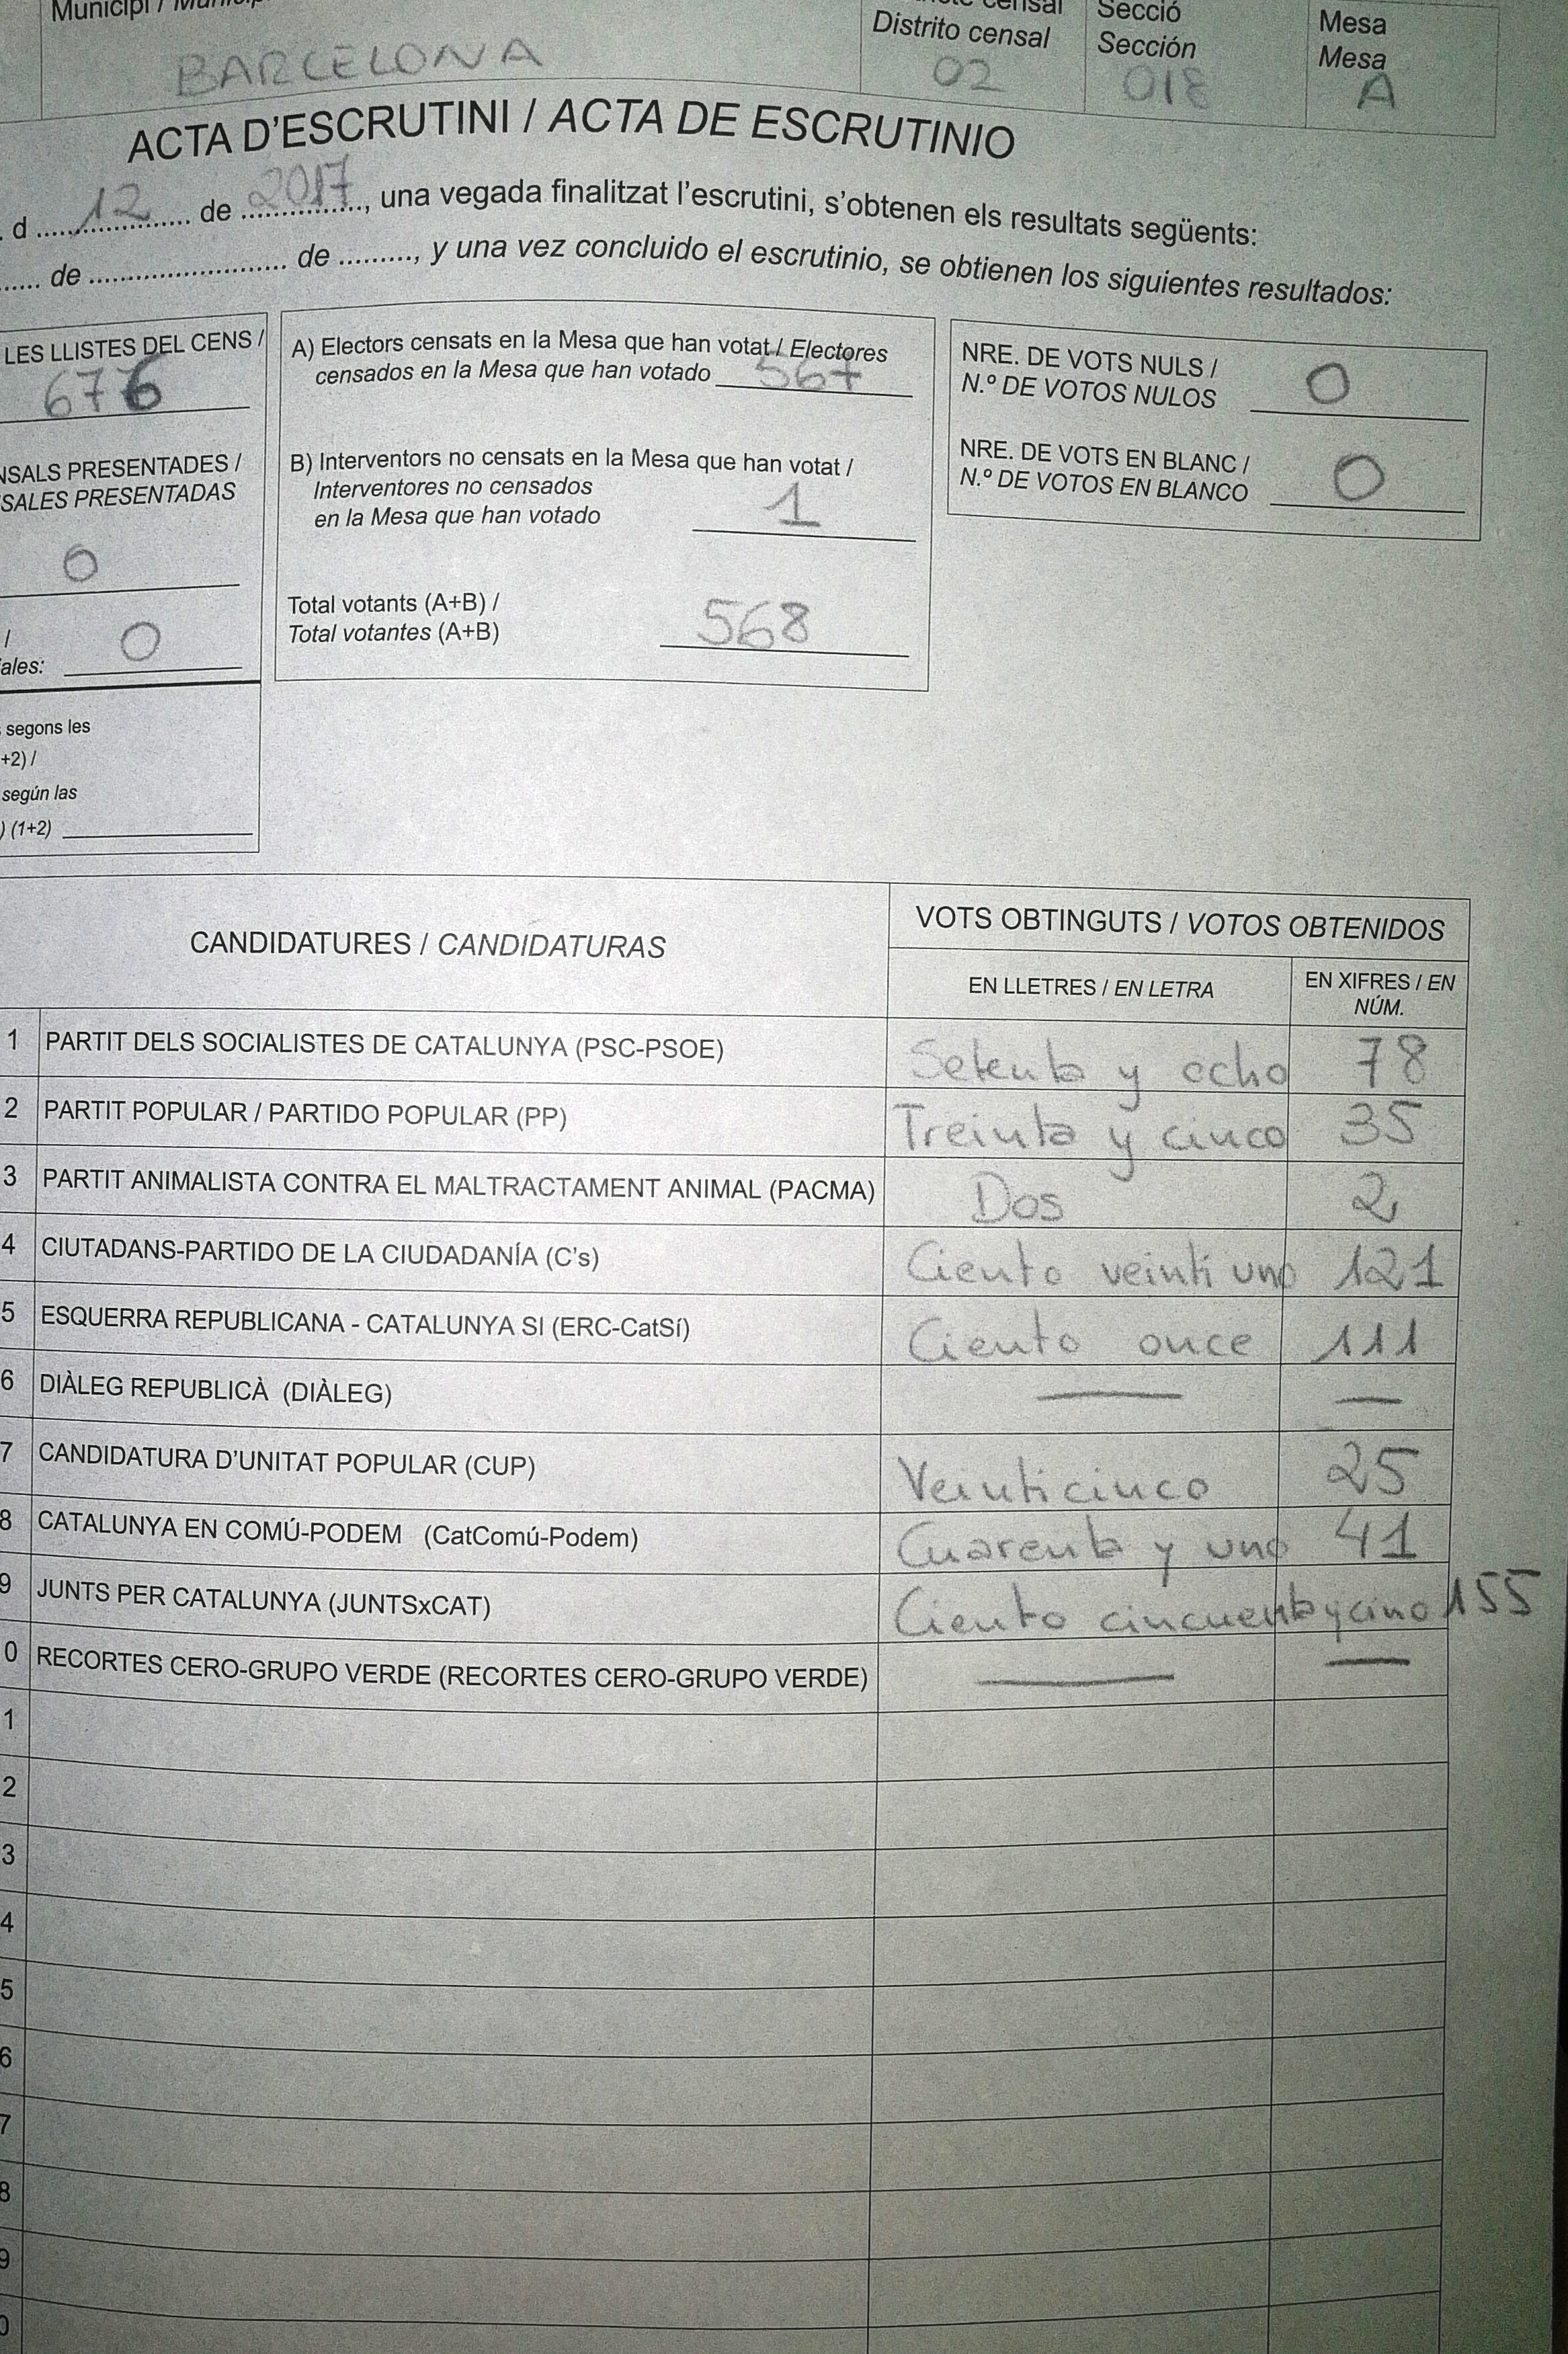 Municipi /
BARCELONA
censal
Distrito censal
02
Secció
Sección
018
Mesa
Mesa
A
ACTA D'ESCRUTINI / ACTA DE ESCRUTINIO
d 12 de 2017, una vegada finalitzat l'escrutini, s'obtenen els resultats següents:
de de , y una vez concluido el escrutinio, se obtienen los siguientes resultados:
LES LLISTES DEL CENS /
676
NSALS PRESENTADES /
SALES PRESENTADAS
0
/
ales: 0
segons les
+2) /
según las
) (1+2)
A) Electors censats en la Mesa que han votat / Electores
censados en la Mesa que han votado 567
B) Interventors no censats en la Mesa que han votat /
Interventores no censados
en la Mesa que han votado 1
Total votants (A+B) /
Total votantes (A+B) 568
NRE. DE VOTS NULS /
N.º DE VOTOS NULOS 0
NRE. DE VOTS EN BLANC /
N.º DE VOTOS EN BLANCO 0
CANDIDATURES / CANDIDATURAS
VOTS OBTINGUTS / VOTOS OBTENIDOS
EN LLETRES / EN LETRA
EN XIFRES / EN
NÚM.
1 PARTIT DELS SOCIALISTES DE CATALUNYA (PSC-PSOE) Setenta y ocho 78
2 PARTIT POPULAR / PARTIDO POPULAR (PP) Treinta y cinco 35
3 PARTIT ANIMALISTA CONTRA EL MALTRACTAMENT ANIMAL (PACMA) Dos 2
4 CIUTADANS-PARTIDO DE LA CIUDADANÍA (C's) Ciento veinti uno 121
5 ESQUERRA REPUBLICANA - CATALUNYA SI (ERC-CatSí) Ciento once 111
6 DIÀLEG REPUBLICÀ (DIÀLEG) — —
7 CANDIDATURA D'UNITAT POPULAR (CUP) Veinticinco 25
8 CATALUNYA EN COMÚ-PODEM (CatComú-Podem) Cuarenta y uno 41
9 JUNTS PER CATALUNYA (JUNTSxCAT) Ciento cincuenta y cinco 155
0 RECORTES CERO-GRUPO VERDE (RECORTES CERO-GRUPO VERDE) — —
1
2
3
4
5
6
7
8
9
0